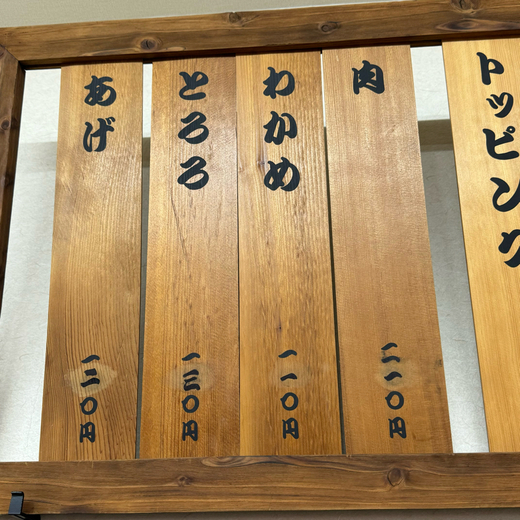 トッピング
肉 二一〇円
わかめ 一一〇円
とろろ 一三〇円
あげ 一二〇円